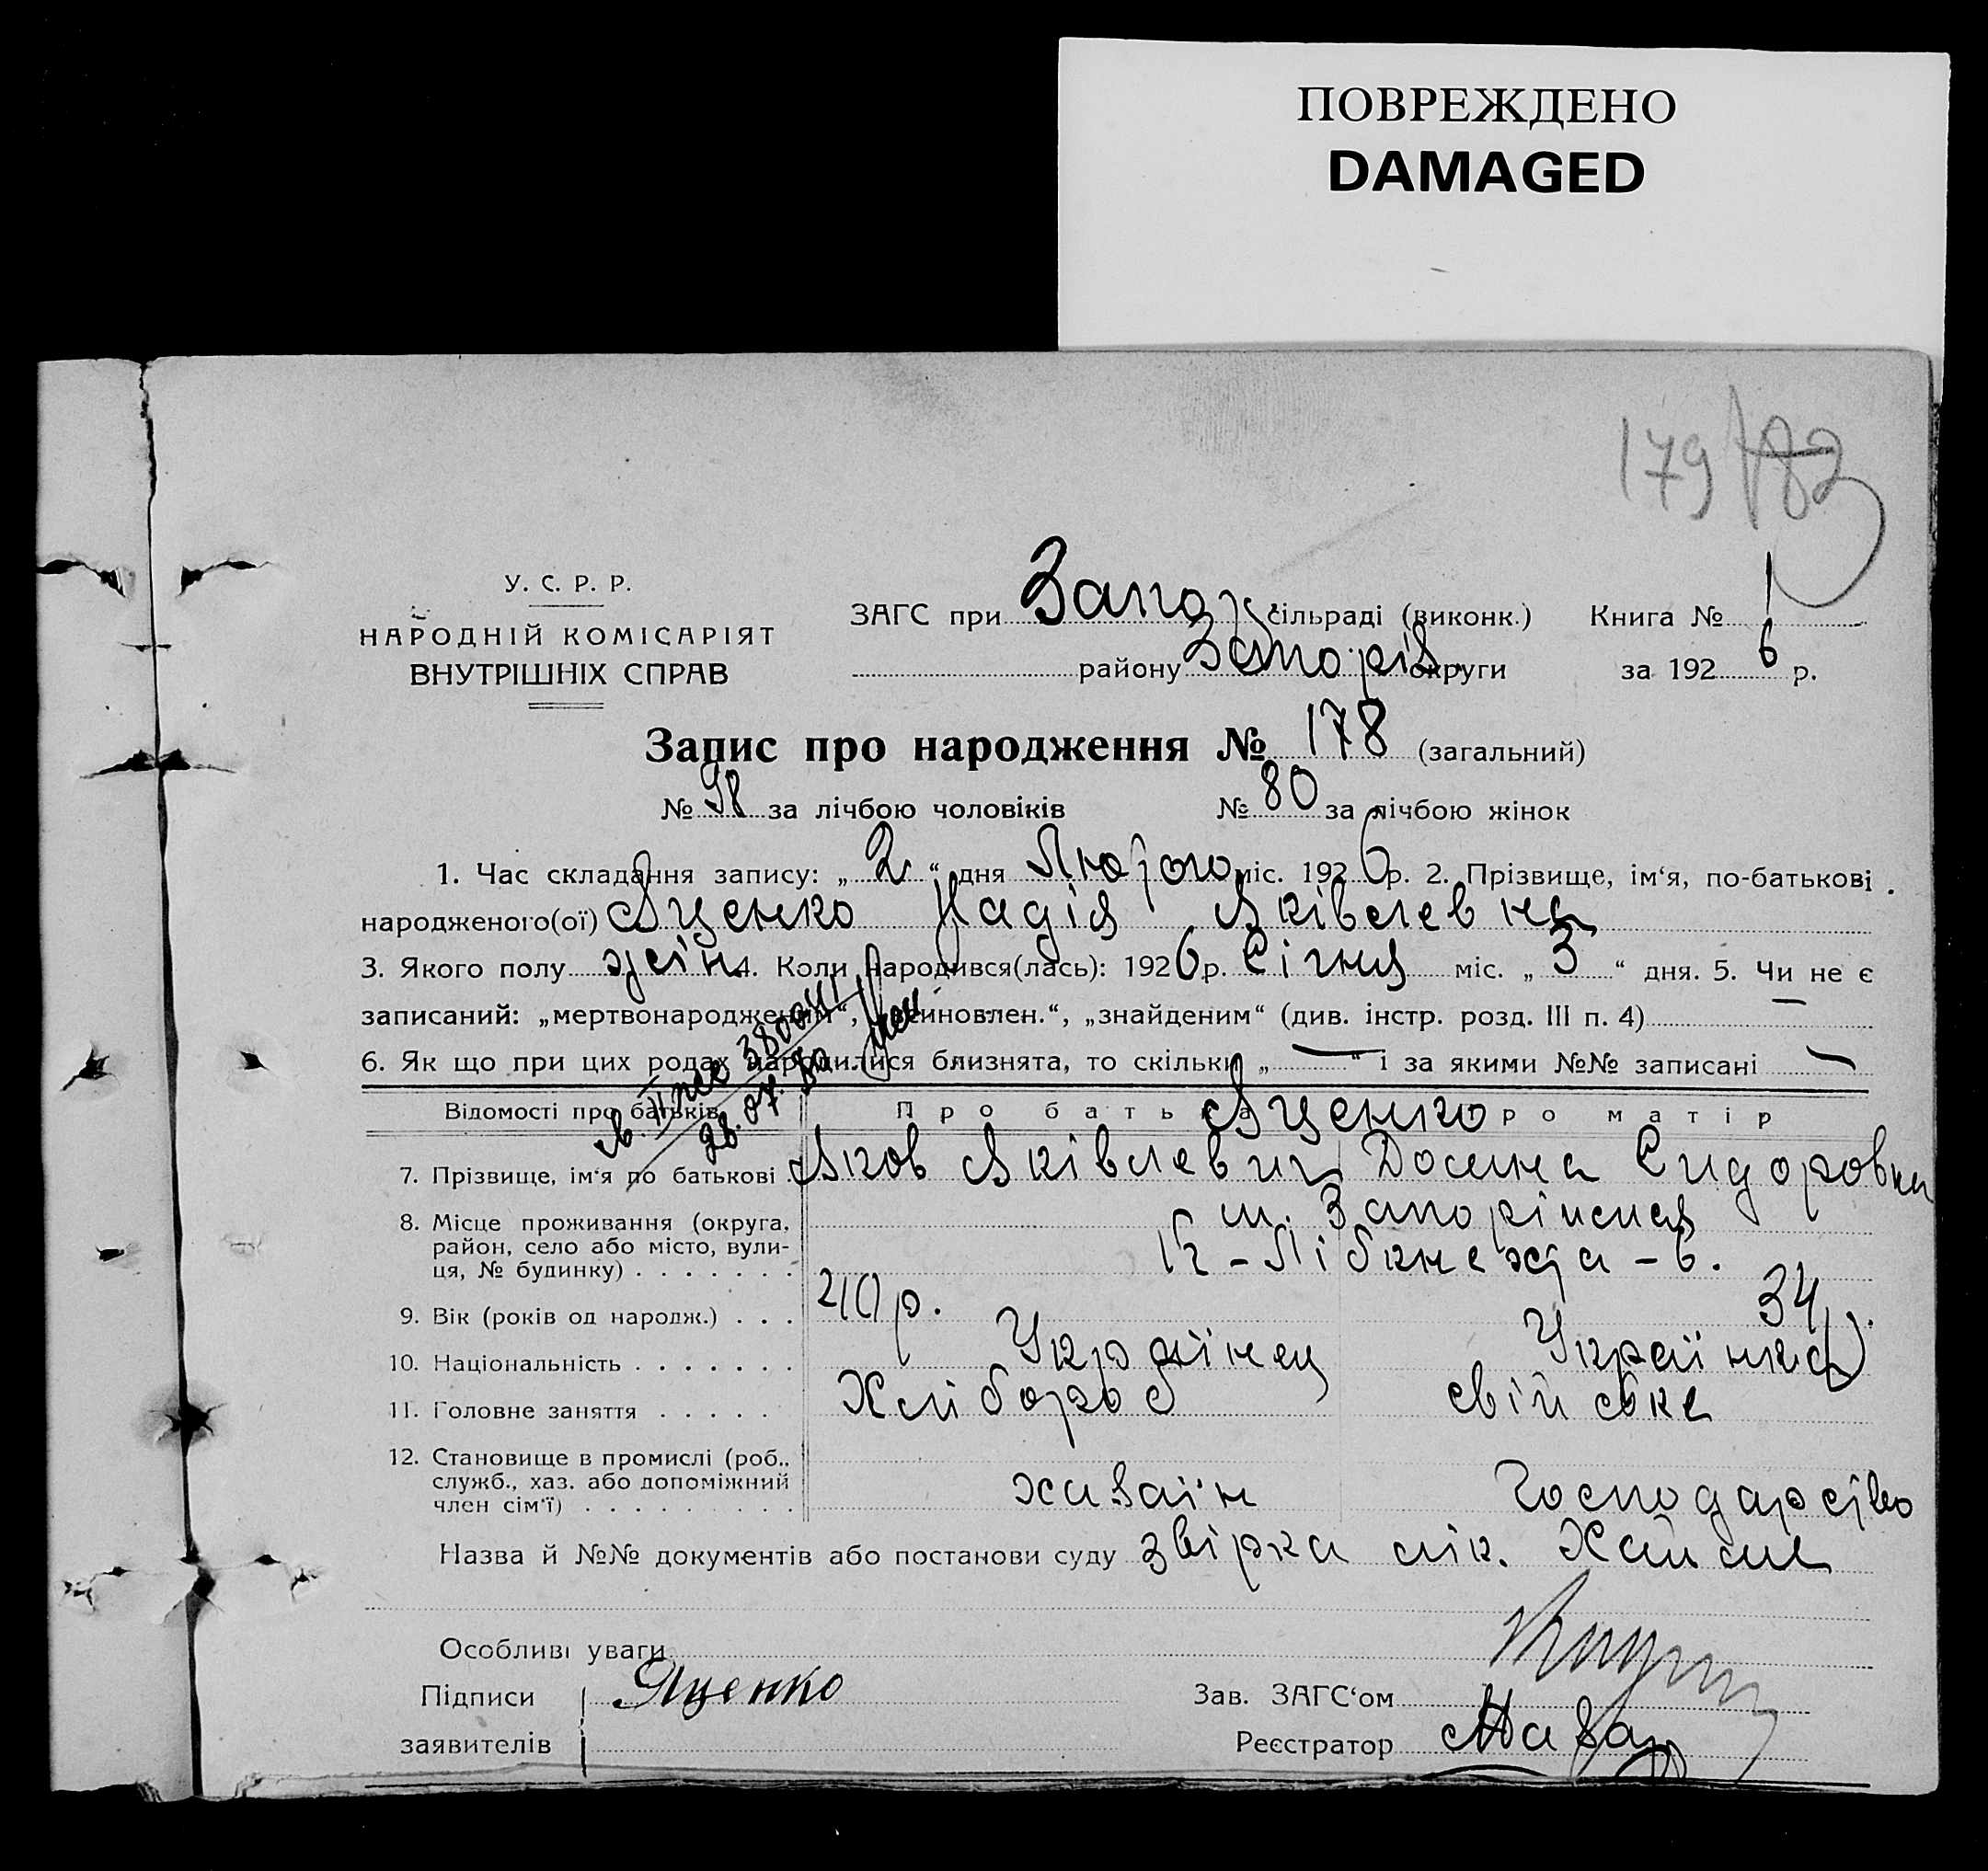 ПОВРЕЖДЕНО
DAMAGED
179
У. С. Р. Р.
НАРОДНІЙ КОМІСАРІЯТ
ВНУТРІШНІХ СПРАВ
ЗАГС при Запор. сільраді (виконк.) Книга № 1
району Запоріз. округи за 1926 р.
Запис про народження № 178 (загальний)
№ 98 за лічбою чоловіків № 80 за лічбою жінок
1. Час складання запису: „ 2 “ дня Лютого міс. 1926 р. 2. Прізвище, ім‘я, по-батькові
народженого(ої) Яценко Надія Яківлевна
3. Якого полу жін. 4. Коли народився(лась): 1926 р. Січня міс. „ 3 “ дня. 5. Чи не є
записаний: „мертвонародженим“, „всиновлен.“, „знайденим“ (див. інстр. розд. III п. 4) —
6. Як що при цих родах народилися близнята, то скільки „ — “ і за якими №№ записані —
Відомості про батьків Про батька Про матір
Яценко
7. Прізвище, ім‘я по батькові . Яков Яківлевич Домна Сидоровна
8. Місце проживання (округа, район, село або місто, вулиця, № будинку) . . . . . . .
м. Запоріжжя
К-Лібкнехта-6.
9. Вік (років од народж.) . . . 40 р. 34 р.
10. Національність . . . . . . . Українец Українка
11. Головне заняття . . . . . Хлібороб свійське
12. Становище в промислі (роб., служб., хаз. або допоміжний член сім‘ї) . . . . . . . . . хазаїн господарство
Назва й №№ документів або постанови суду звірка лік.
Особливі уваги
Підписи Яценко Зав. ЗАГС‘ом
заявителів Реєстратор